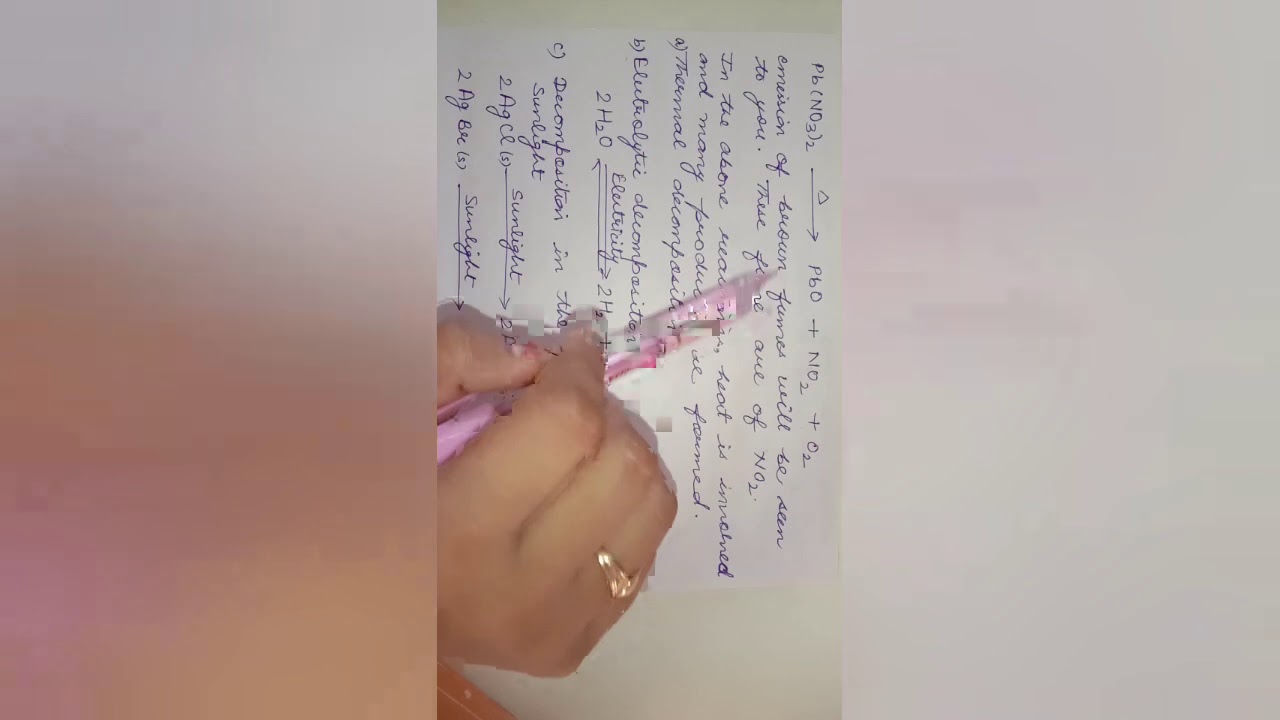 Pb(NO3)2 —Δ→ PbO + NO2 + O2
emission of brown fumes will be seen
to you. These are of NO2.
In the above heat is involved
and many formed.
a) Thermal decomposition
b) Electrolytic decomposition
2H2O Electricity 2H2 +
c) Decomposition in the
Sunlight
2AgCl(s) Sunlight→ 2
2AgBr(s) Sunlight→